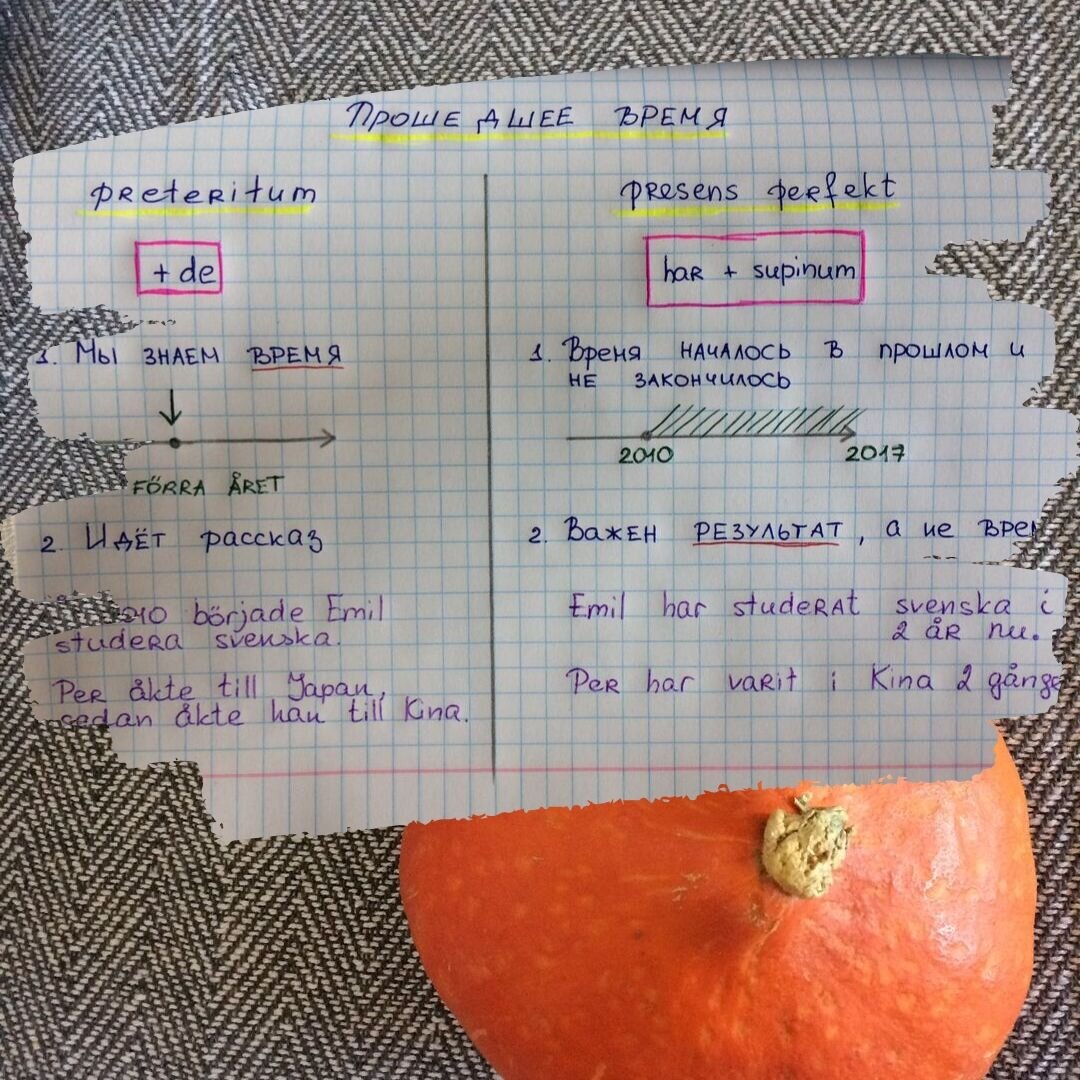 ПРОШЕДШЕЕ ВРЕМЯ
preteritum
+ de
1. Мы знаем время
FÖRRA ÅRET
2. Идёт рассказ
började Emil
studera svenska.
Per åkte till Japan,
sedan åkte han till Kina.
presens perfekt
har + supinum
1. Время началось в прошлом и
не закончилось
2010 2017
2. Важен результат, а не
Emil har studerat svenska i
2 år nu.
Per har varit i Kina 2